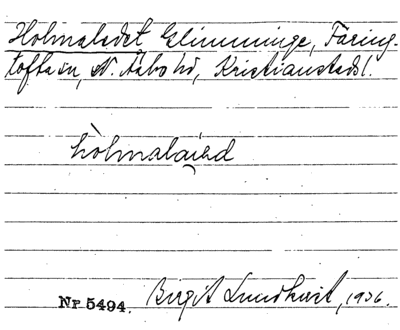 Holmaledet Glimminge, Faring-
tofta sn, N. Åsbo hd, Kristianstads l.
hòlmalaiəd
Nr 5494. Birgit Lundkvist, 1936.